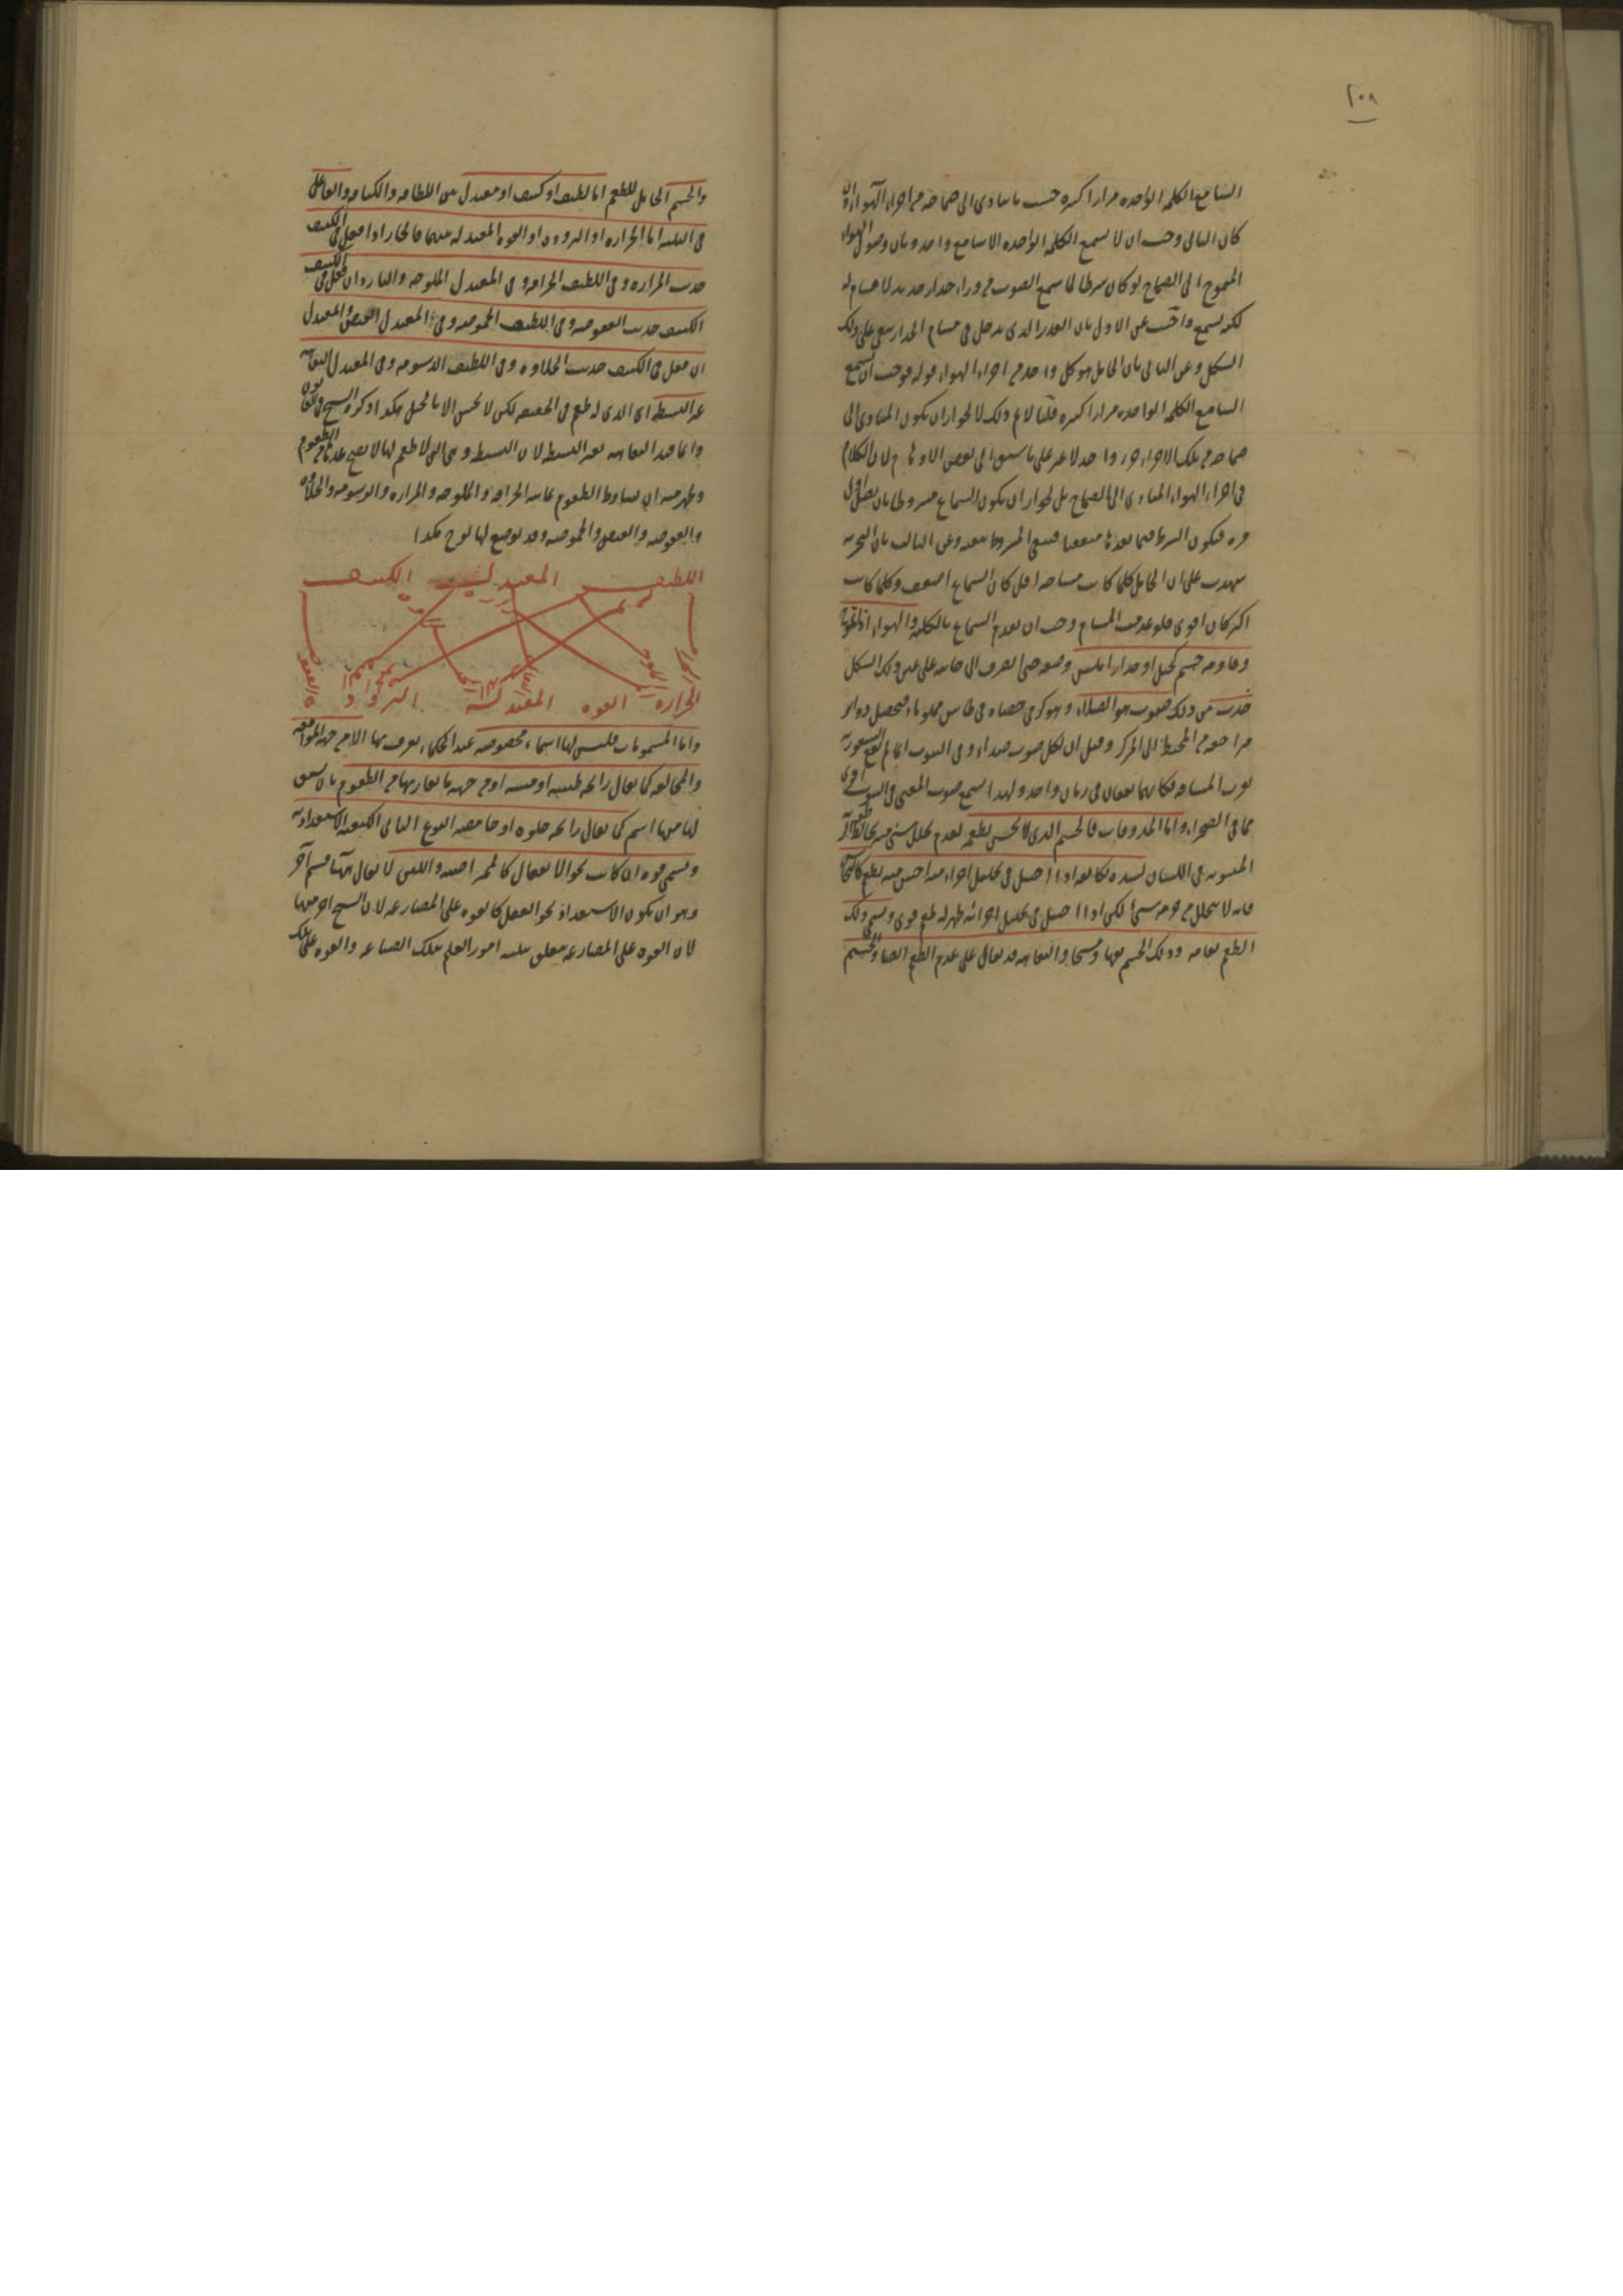 ٢٠٨
السامع الكلمة الواحدة مرارا كثيرة حسب ما يتأدى الى صماخه من اجزاء الهواء وان
كان الثاني وجب ان لا يسمع الكلمة الواحدة الا سامع واحد وبان وصول الهواء
المتموج الى الصماخ لو كان شرطا لما سمع الصوت من وراء جدار حديد لا مسام له
لكنه يسمع واجيب عن الاول بان القدر الذي يدخل في مسام الجدار يبقى على ذلك
الشكل وعن الثاني بان الحامل هو كل واحد من اجزاء الهواء قوله فوجب ان يسمع
السامع الكلمة الواحدة مرارا كثيرة قلنا لا نم ذلك لجواز ان يكون المتأدى الى
صماخه من تلك الاجزاء جزء واحد لا غير على ما سبق الى بعض الاوهام لان الكلام
في اجزاء الهواء المتأدى الى الصماخ بل لجواز ان يكون السماع مشروطا بان يصل اول
مرة فيكون الشرط فيما بعدها منتفيا فينتفي المشروط بعده وعن الثالث بان التجربة
شهدت على ان الحامل كلما كانت مسامه اقل كان السماع اضعف وكلما كانت
اكثر كان اقوى فلو عدمت المسام وجب ان يعدم السماع بالكلية والهواء اذا تموج
وقاومه جسم كجبل او جدار املس وصده حتى انصرف الى خلفه على عين ذلك الشكل
حدث من ذلك صوت هو الصداء وهو كرمي حصاة في طاس مملو ماء فتحصل دوائر
متراجعة من المحيط الى المركز وقيل ان لكل صوت صداء وفي البيوت انما لم يقع الشعور به
لقرب المسافة فكانهما يقعان في زمان واحد ولهذا يسمع صوت المغني في البيوت اقوى
مما في الصحراء واما المذوقات فالجسم الذي لا يحس بطعمه لعدم تحلل شيء منه يخالط الرطوبة
المبثوثة في اللسان لشدة تكاثفه اذا احتيل في تحليل اجزاء منه احس منه بطعم كالنحاس
فانه لا يتحلل من جرمه شئ لكن اذا احتيل في تحليل اجزائه ظهر له طعم قوى ويسمى ذلك
الطعم تفاهة وذلك الجسم تفها ومسيخا والتفاهة قد تقال على عدم الطعم ايضا والجسم
والجسم الحامل للطعم اما لطيف او كثيف او معتدل بين اللطافة والكثافة والفاعل
في الثلثة اما الحرارة او البرودة او القوة المعتدلة بينهما فالحار اذا فعل في الكثيف
حدث المرارة وفي اللطيف الحرافة وفي المعتدل الملوحة والبارد ان فعل في الكثيف
الكثيف حدث العفوصة وفي اللطيف الحموضة وفي المعتدل القبض والمعتدل
ان فعل في الكثيف حدث الحلاوة وفي اللطيف الدسومة وفي المعتدل التفاهة
غير البسيطة اى الذي له طعم في الحقيقة لكن لا يحس الا بالحيل هكذا ذكره الشيخ في القانون
وانما قيد التفاهة بغير البسيطة لان البسيطة وهي التي لا طعم لها لا يصح عدها في الطعوم
وظهر منه ان بسائط الطعوم ثمانية الحرافة والملوحة والمرارة والدسومة والحلاوة
والعفوصة والقبض والحموضة وقد يوضع لها لوح هكذا
اللطيف المعتدل الكثيف
الحرارة القوة المعتدلة البرودة
واما المشمومات فليس لها اسماء مخصوصة عند الحكماء يعرف بها الا من جهة الموافقة
والمخالفة كما يقال رائحة طيبة او منتنة او من جهة ما يقارنها من الطعوم بان يشتق
لها منها اسم كما يقال رائحة حلوة او حامضة النوع الثاني الكيفية الاستعدادية
ويسمى قوة ان كانت نحو الانفعال كالممراضية واللين لا يقال ههنا قسم آخر
وهو ان يكون الاستعداد نحو الفعل كالقوة على المصارعة لان الشيخ اخرجها
لان القوة على المصارعة يتعلق بثلثة امور العلم بتلك الصناعة والقوة على تلك